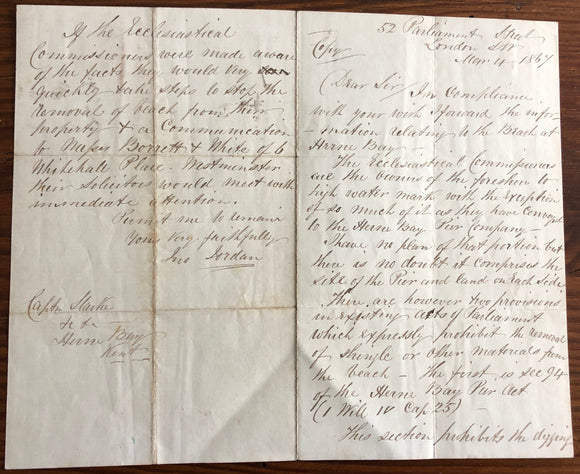 52 Parliament Street
London SW
Mar 4 1867
Copy
Dear Sir / In Compliance
with your wish I forward the infor-
-mation relating to the Beach at
Herne Bay -
The Ecclesiastical Commissioners
are the owners of the foreshore to
high water mark with the exception
of so much of it as they have conveyed
to the Herne Bay Pier Company -
I have no plan of that portion but
there is no doubt it comprises the
site of the Pier and land on each side
There are however two provisions
in existing acts of Parliament
which expressly prohibit the removal
of shingle or other materials from
the beach - The first is sec 94
of the Herne Bay Pier Act
(1 Will IV Cap 25) -
This section prohibits the digging
If the Ecclesiastical
Commissioners were made aware
of the facts they would very
quickly take steps to stop the
removal of beach from their
property & a Communication
to Messrs Borrett & White of 6
Whitehall Place - Westminster
their solicitors would meet with
immediate attention.
Permit me to remain
Yours very faithfully
Jno Jordan
Captn
&c &c
Herne Bay
Kent